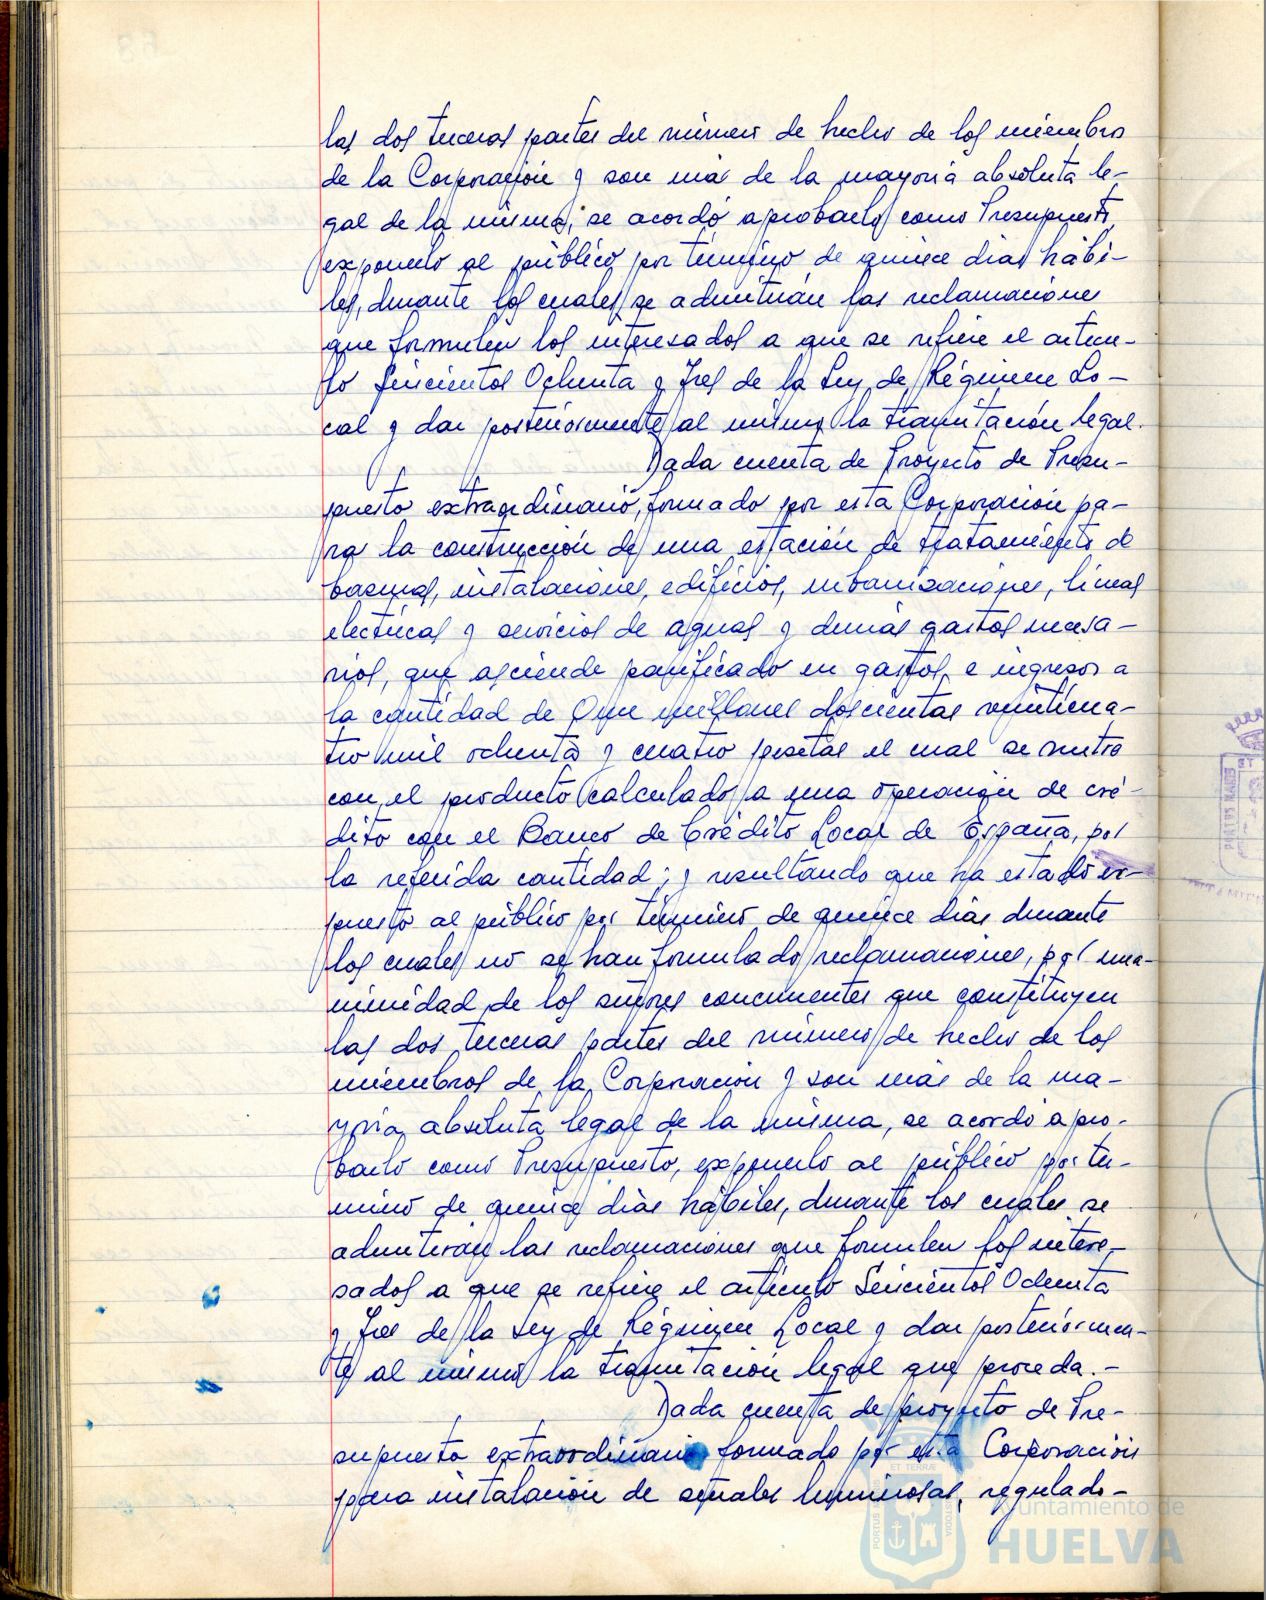 las dos terceras partes del número de hecho de los miembros
de la Corporación y son más de la mayoria absoluta le-
gal de la misma, se acordó aprobarlo como Presupuesto,
exponerlo al público por término de quince dias hábi-
les, durante los cuales se admitirán las reclamaciones
que formulen los interesados a que se refiere el articu-
lo Seiscientos Ochenta y Tres de la Ley de Régimen Lo-
cal y dar posteriormente al mismo la tramitación legal.
Dada cuenta de Proyecto de Presu-
puesto extraordinario, formado por esta Corporación pa-
ra la construcción de una estación de tratamiento de
basuras, instalaciones, edificios, urbanizaciones, lineas
electricas y servicios de aguas y demás gastos necesa-
rios, que asciende panificado en gastos e ingresos a
la cantidad de Once millones doscientas veinticua-
tro mil ochenta y cuatro pesetas el cual se nutre
con el producto calculado a una operación de cré-
dito con el Banco de Crédito Local de España, por
la referida cantidad; y resultando que ha estado ex-
puesto al público por término de quince dias durante
los cuales no se han formulado reclamaciones, por una-
nimidad de los señores concurrentes que constituyen
las dos terceras partes del número de hecho de los
miembros de la Corporación y son más de la ma-
yoria absoluta legal de la misma, se acordó apro-
barlo como Presupuesto, exponerlo al público por tér-
mino de quince dias hábiles, durante los cuales se
admitirán las reclamaciones que formulen los intere-
sados a que se refiere el articulo Seiscientos Ochenta
y Tres de la Ley de Régimen Local y dar posteriormen-
te al mismo la tramitación legal que proceda.-
Dada cuenta de proyecto de Pre-
supuesto extraordinario formado por esta Corporación
para instalación de señales luminosas, regulado-
Ayuntamiento de
HUELVA